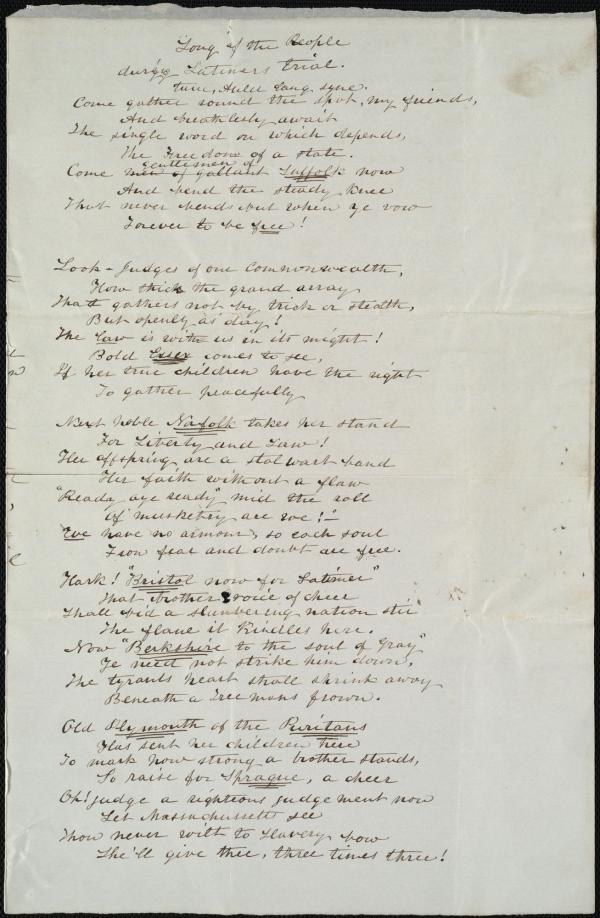 Song of the People
during Latimers trial.
tune, Auld lang syne.
Come gather round the spot, my friends,
And breathlessly await
The single word on which depends,
The Freedom of a state.
gentlemen of
Come men of gallant Suffolk now
And bend the steady knee
That never bends but when ye vow
Forever to be free!
Look - Judges of our Commonwealth,
How thick the grand array
That gathers not by trick or stealth,
But openly as day!
The law is with us in its might!
Bold Essex comes to see,
If her true children have the right
To gather peacefully
Next noble Norfolk takes her stand
For Liberty and Law!
Her offspring are a stalwart band
Her faith without a flaw
"Ready aye ready" mid the roll
Of musketry are we!"
We have no armour, so each soul
From fear and doubt are free.
Hark! "Bristol now for Latimer"
That brother voice of cheer
Shall bid a slumbering nation stir
The flame it kindles here.
Now "Berkshire to the soul of Gray"
Ye need not strike him down,
The tyrants heart shall shrink away
Beneath a Free mans frown.
Old Plymouth of the Puritans
Has sent her children here
To mark how strong a brother stands,
So raise for Sprague, a cheer
Oh! judge a righteous judgement now
Let Massachusetts see
Thou never wilt to slavery bow
She'll give thee, three times three!